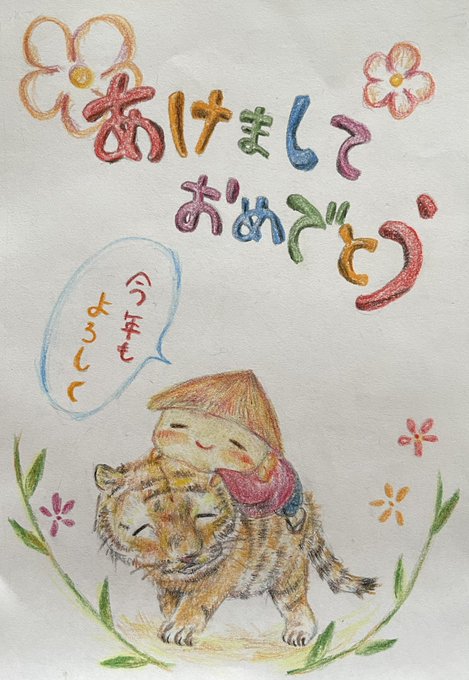 あけまして
おめでとう
今年も
よろしく